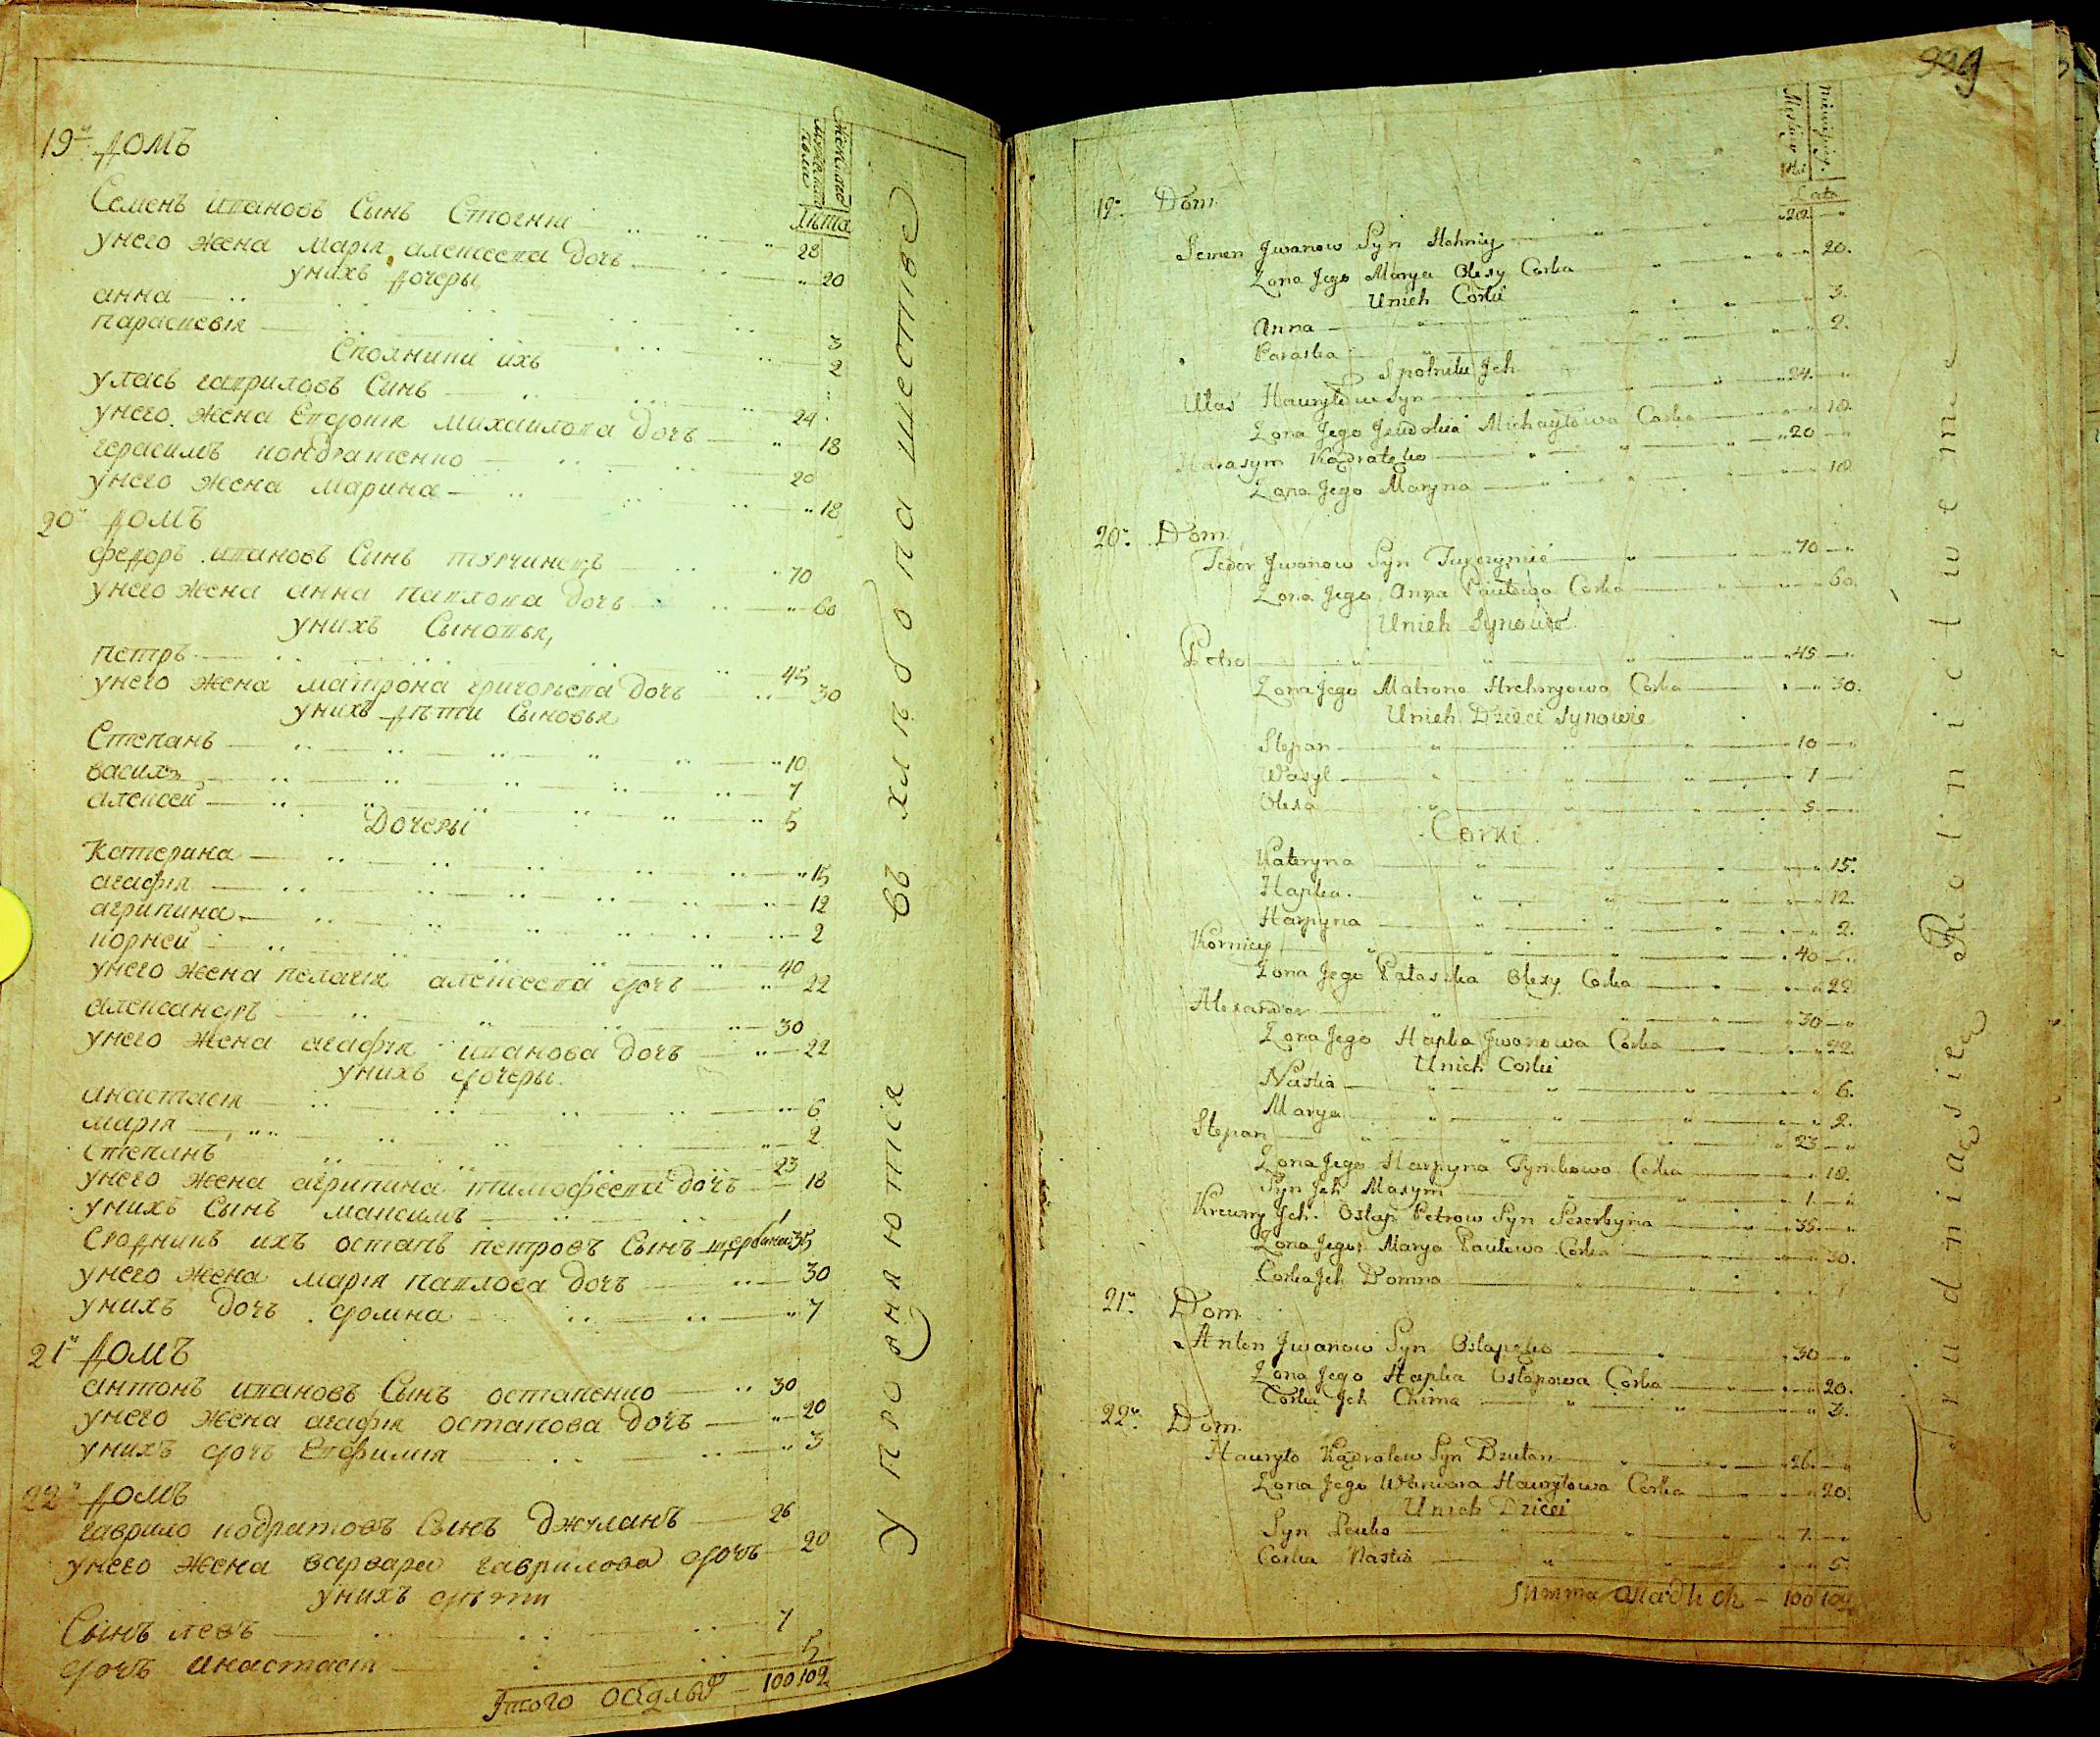 19й домъ
женскаго
мужскаго
лѣта
Семенъ ивановъ Сынъ Стогнiй 28
унего жена марiя алексеева дочь 20
унихъ дочеры
анна 3
парасковiя 2
Спояники ихъ
уласъ гавриловъ Синъ 24
унего жена Евдокiя михаилова дочь 18
герасимъ кондратенко 20
унего жена марина 18
20й домъ
федоръ ивановъ Сынъ турчинецъ 70
унего жена анна павлова дочь 60
унихъ Сыновья,
петръ 45
унего жена матрона григорьева дочь 30
унихъ дѣти Сыновья
Степанъ 10
василъ 7
алексей 5
Дочеры
Катерина 15
агафiя 12
агрипина 2
корней 40
унего жена пелагiя алексеева дочь 22
александръ 30
унего жена агафiя иванова дочь 22
унихъ дочеры
анастасiя 6
марiя 2
степанъ 23
унего жена агрипина тимофеева дочь 18
унихъ Сынъ максимъ 1
Сродникъ ихъ остапъ петровъ Сынъ щербина 35
унего жена марiя павлова дочь 30
унихъ дочь домна 7
21й домъ
антонъ ивановъ Сынъ остапенко 30
унего жена агафiя остапова дочь 20
унихъ дочь Евфимiя 3
22й домъ
гаврило кодратовъ Сынъ джуланъ 26
унего жена варвара гаврилова дочь 20
унихъ дѣти
Сынъ левъ 7
дочь анастасiя 5
Итого 100 102
упроаняются въ хлѣбопашествѣ
939
Lata
19. Dom
Semen Jwanow Syn Stohniy 28
Zona Jego Marya Olexy Corka 20.
Unich Corki
Anna 3.
Paraska 2.
Spolniki Jch
Ulas Hawryłow Syn 24.
Zona Jego Jewdokia Michayłowa Corka 18.
Harasym Kądratęko 20
Zona Jego Maryna 18.
20. Dom
Fedor Jwanow Syn 70
Zona Jego Anna Pawłowa Corka 60.
Unich Synowie
Petro 45
Zona Jego Matrona Hrehorgowa Corka 30.
Unich Dzieci Synowie
Stepan 10
Wasyl 7
Olexa 5
Corki.
Kateryna 15.
Hapka 12.
Harpyna 2.
Korniey 40
Zona Jego Palaska Olexy Corka 22
Alexander 30
Zona Jego Hapka Jwanowa Corka 22.
Unich Corki
Nastia 6.
Marya 2.
Stepan 23
Zona Jego Harpyna Tymkowa Corka 18.
Syn Jch Maxym 1
Krewny Jch Ostap Petrow Syn Szczerbyna 35
Zona Jego Marya Pawłowa Corka 30.
Corka Jch Domna 7
21. Dom.
Anton Jwanow Syn Ostapęko 30
Zona Jego Hapka Ostapowa Corka 20.
Corka Jch Chima 3.
22. Dom.
Hawryło Kądratow Syn Dzulan 26
Zona Jego Warwara Hawryłowa Corka 20.
Unich Dzieci
Syn Lewko 7.
Corka Nastia 5.
Summa osadłych 100 102
Trudniąsię Rolnictwem